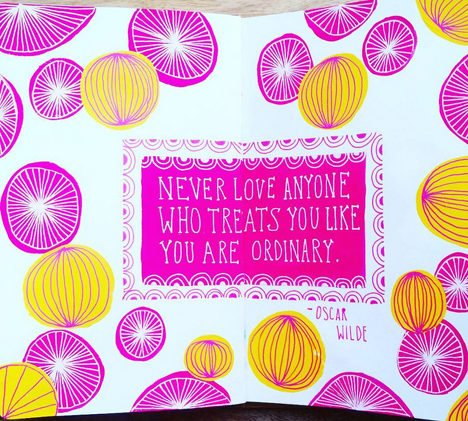 NEVER LOVE ANYONE
WHO TREATS YOU LIKE
YOU ARE ORDINARY.
-OSCAR
WILDE